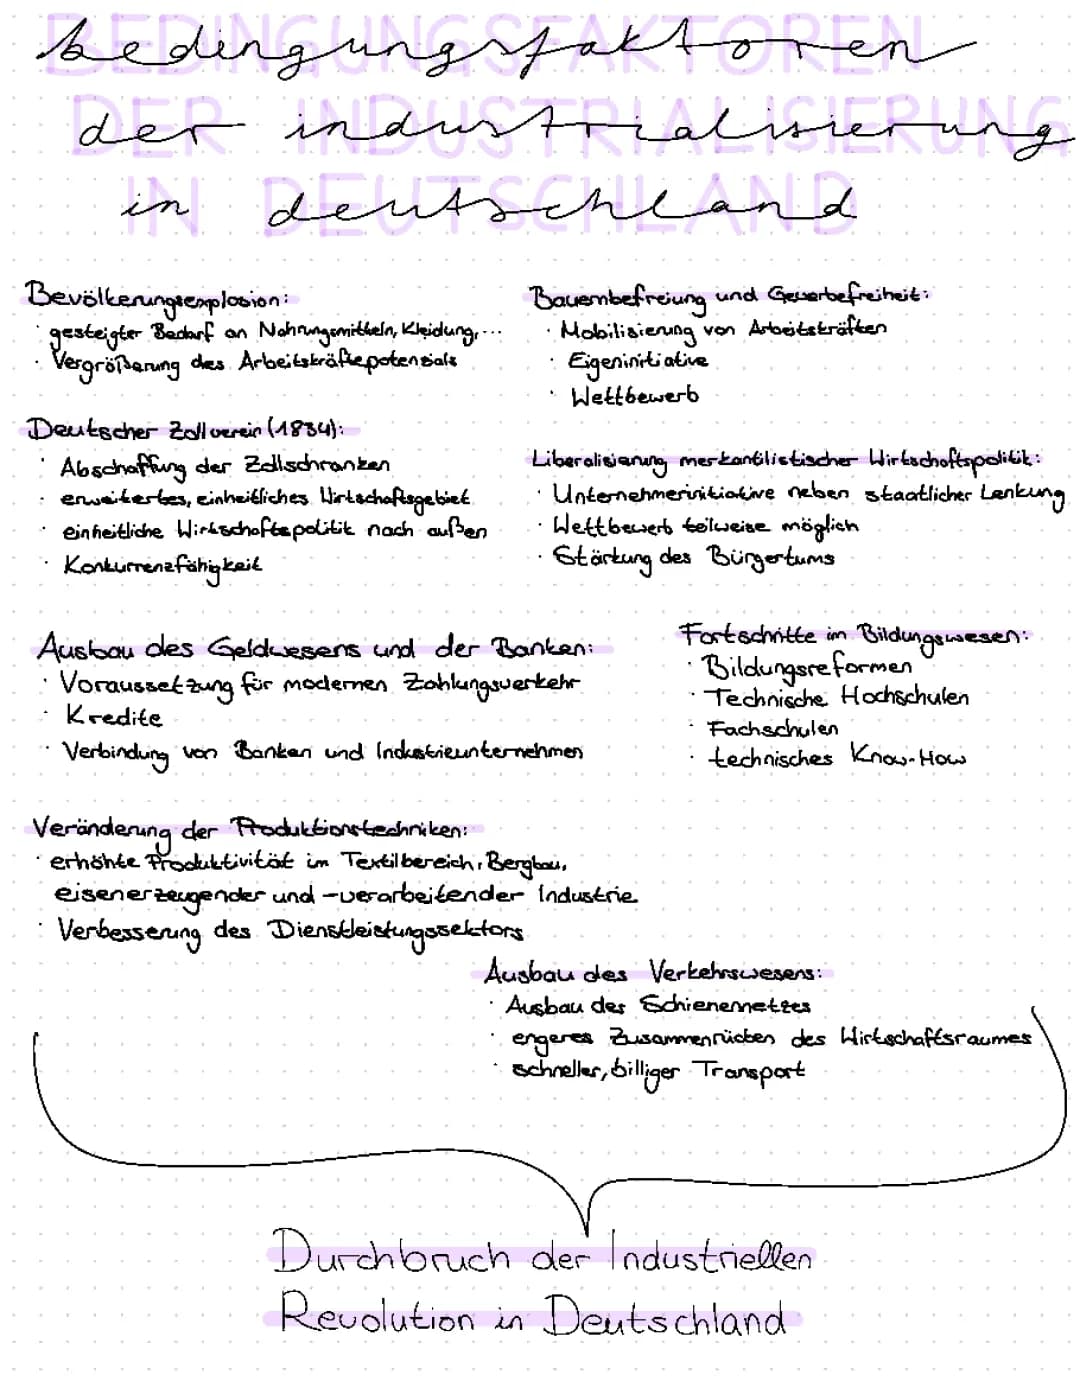 bedingungsfaktoren
der industrialisierung
in deutschland
Bevölkerungsexplosion:
· gesteigter Bedarf an Nahrungsmitteln, Kleidung,...
· Vergrößerung des Arbeitskräftepotenzials
Deutscher Zollverein (1834):
· Abschaffung der Zollschranken
· erweitertes, einheitliches Wirtschaftsgebiet
· einheitliche Wirtschaftspolitik nach außen
· Konkurrenzfähigkeit
Bauernbefreiung und Gewerbefreiheit:
· Mobilisierung von Arbeitskräften
· Eigeninitiative
· Wettbewerb
Liberalisierung merkantilistischer Wirtschaftspolitik:
· Unternehmerinitiative neben staatlicher Lenkung
· Wettbewerb teilweise möglich
· Stärkung des Bürgertums
Ausbau des Geldwesens und der Banken:
· Voraussetzung für modernen Zahlungsverkehr
· Kredite
· Verbindung von Banken und Industrieunternehmen
Fortschritte im Bildungswesen:
· Bildungsreformen
· Technische Hochschulen
· Fachschulen
· technisches Know-How
Veränderung der Produktionstechniken:
· erhöhte Produktivität im Textilbereich, Bergbau,
eisenerzeugender und -verarbeitender Industrie
· Verbesserung des Dienstleistungssektors
Ausbau des Verkehrswesens:
· Ausbau des Schienennetzes
· engeres Zusammenrücken des Wirtschaftsraumes
· schneller, billiger Transport
Durchbruch der Industriellen
Revolution in Deutschland